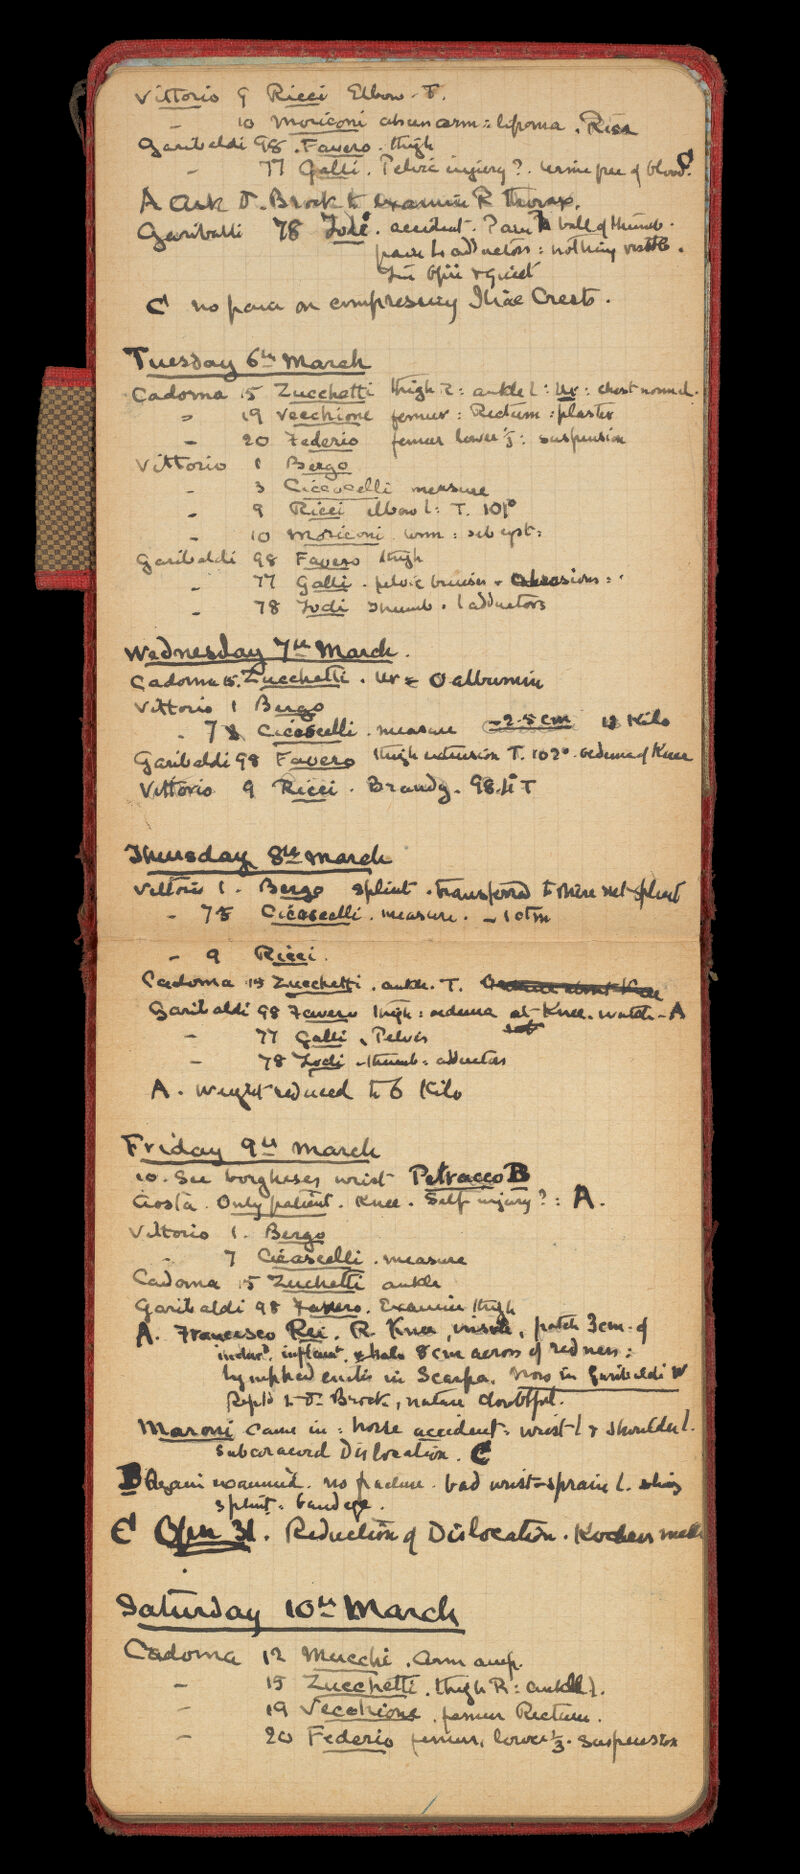 Vittorio 9 Ricci Elbow. T.
- 10 Moriconi arm : lipoma .
Garibaldi 98 . Favero . thigh
- 77 Galli . Pelvic injury ? . urine free of blood. C
A Ask D. Brock to examine R thorax.
Garibaldi 78 Jodi . accident . Pain R ball of thumb .
pain L adductors : nothing visible .
& quiet
C no pain on compressing Iliac Crests .
Tuesday 6th March
Cadorna 15 Zucchetti thigh R : ankle L : Ur : chest normal .
" 19 Vecchione femur : Rectum : plaster
- 20 Federio femur lower ⅓ : suspension
Vittorio 1 Bergo
- 3 Cicascelli measure
- 9 Ricci elbow L : T. 101°
- 10 Moriconi :
Garibaldi 98 Favero thigh
- 77 Galli . pelvic bruises + abrasions :
- 78 Jodi thumb . L adductors
Wednesday 7th March .
Cadorna 15. Zucchetti . Ur = O albumin
Vittorio 1 Bergo
- 7 Cicascelli . measure -2.5 cm 12 Kilo
Garibaldi 98 Favero thigh extension T. 102° . oedema of Knee
Vittorio 9 Ricci . Brandy . 98.4° T
Thursday 8th March
Vittorio 1 . Bergo splint . transferred to wire net splint
- 7 Cicascelli . measure . - 1 cm
- 9 Ricci .
Cadorna 15 Zucchetti . ankle . T.
Garibaldi 98 Favero thigh : oedema at Knee . watch - A
- 77 Galli . Pelvis
- 78 Jodi - thumb : adductors
A . Weight reduced to 6 Kilo
Friday 9th March
10 . See borgheses wrist Petracco B
Aosta . Only patient . Knee . Self injury ? : A .
Vittorio 1 . Bergo
- 7 Cicascelli . measure
Cadorna 15 Zuchetti ankle
Garibaldi 98 Favero . Examine thigh
A . Francesco Rei . R. Knee , inside , patch 3 cm . of
indurd. inflamt. & halo 8 cm across of redness :
lymphadenitis in Scarpa . Now in Garibaldi W
Reptd to D. Brock , nature doubtful .
Maroni came in : horse accident : wrist L & shoulder L .
subcoracoid Dislocation . C
B Again examined . no fracture . bad wrist-sprain L .
splint : bandage .
C Opn 31 . Reduction of Dislocation . Kochers meth
Saturday 10th March
Cadorna 12 Mucchi . arm amp.
- 15 Zucchetti . thigh R : ankle L .
- 19 Vecchione . femur Rectum .
- 20 Federio femur , lower ⅓ . suspension